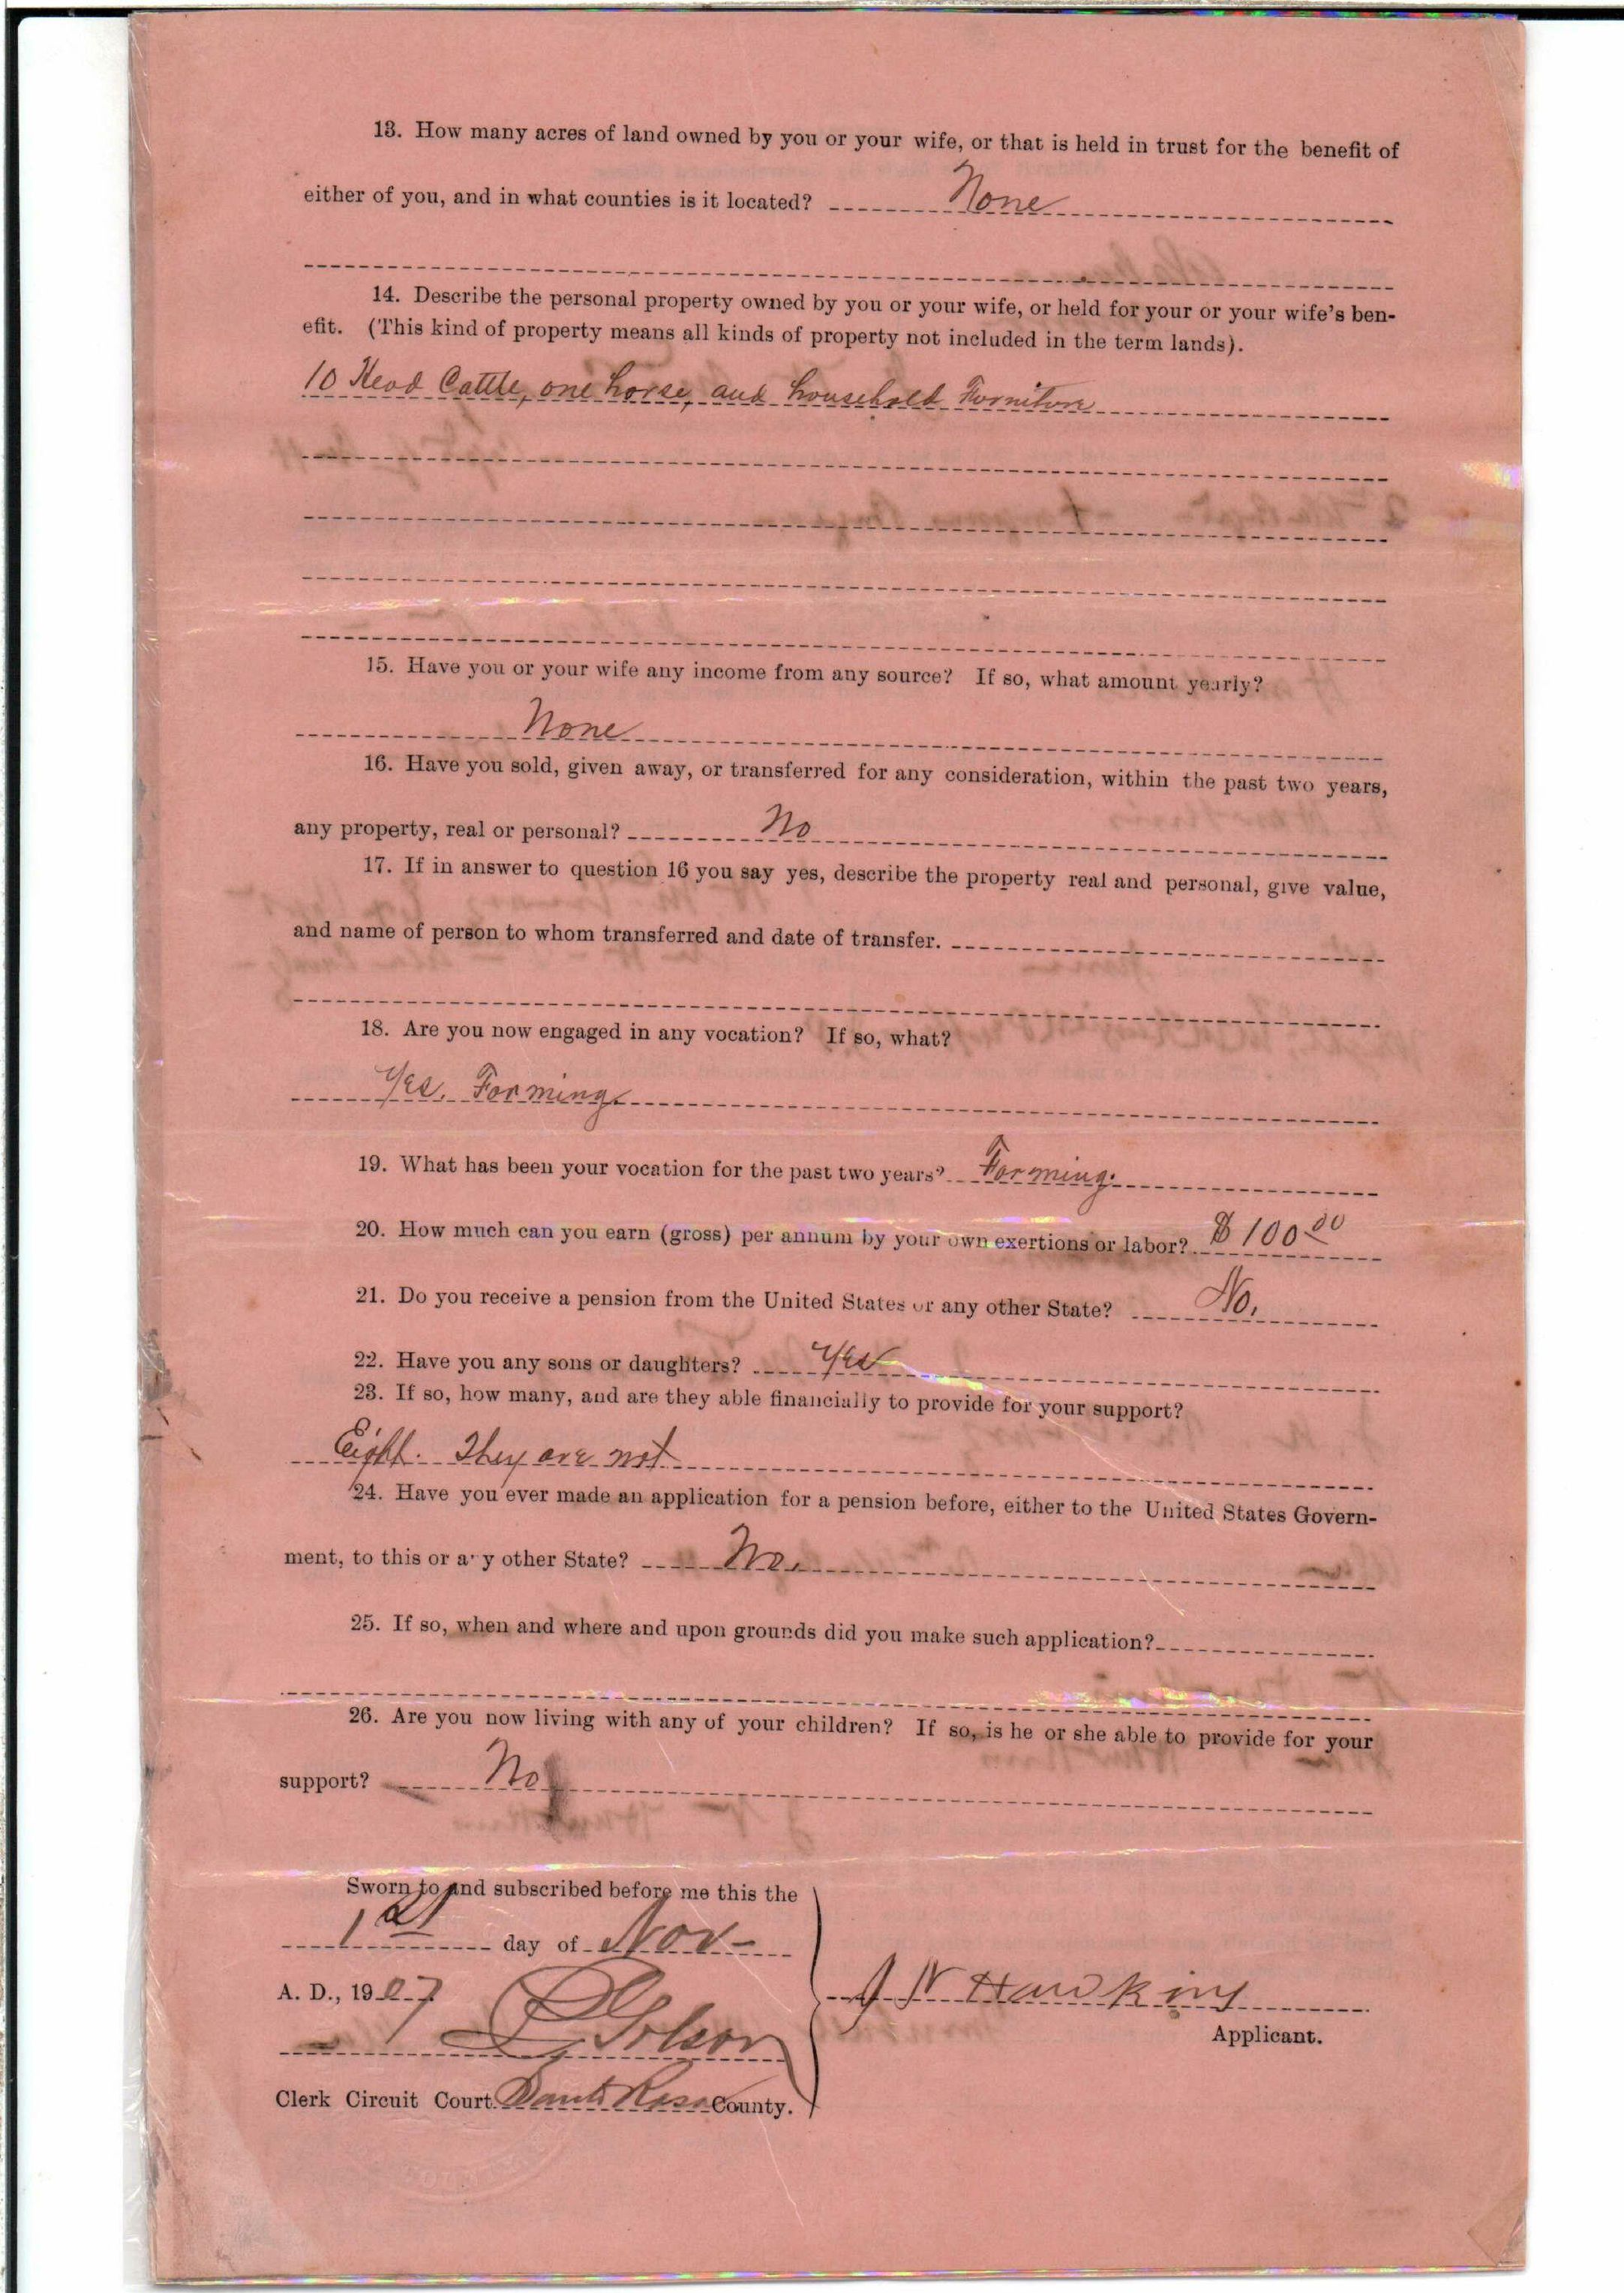 13. How many acres of land owned by you or your wife, or that is held in trust for the benefit of
either of you, and in what counties is it located? None
14. Describe the personal property owned by you or your wife, or held for your or your wife's ben-
efit. (This kind of property means all kinds of property not included in the term lands).
10 Head Cattle, one horse, and household Furniture
15. Have you or your wife any income from any source? If so, what amount yearly?
None
16. Have you sold, given away, or transferred for any consideration, within the past two years,
any property, real or personal? No
17. If in answer to question 16 you say yes, describe the property real and personal, give value,
and name of person to whom transferred and date of transfer.
18. Are you now engaged in any vocation? If so, what?
Yes. Farming.
19. What has been your vocation for the past two years? Farming.
20. How much can you earn (gross) per annum by your own exertions or labor? $100.00
21. Do you receive a pension from the United States or any other State? No.
22. Have you any sons or daughters? Yes
23. If so, how many, and are they able financially to provide for your support?
Eight. They are not
24. Have you ever made an application for a pension before, either to the United States Govern-
ment, to this or any other State? No.
25. If so, when and where and upon grounds did you make such application?
26. Are you now living with any of your children? If so, is he or she able to provide for your
support? No
Sworn to and subscribed before me this the
1st day of Nov-
A. D., 1907
J W Hawkins
Applicant.
Golson
Clerk Circuit Court Santa Rosa County.